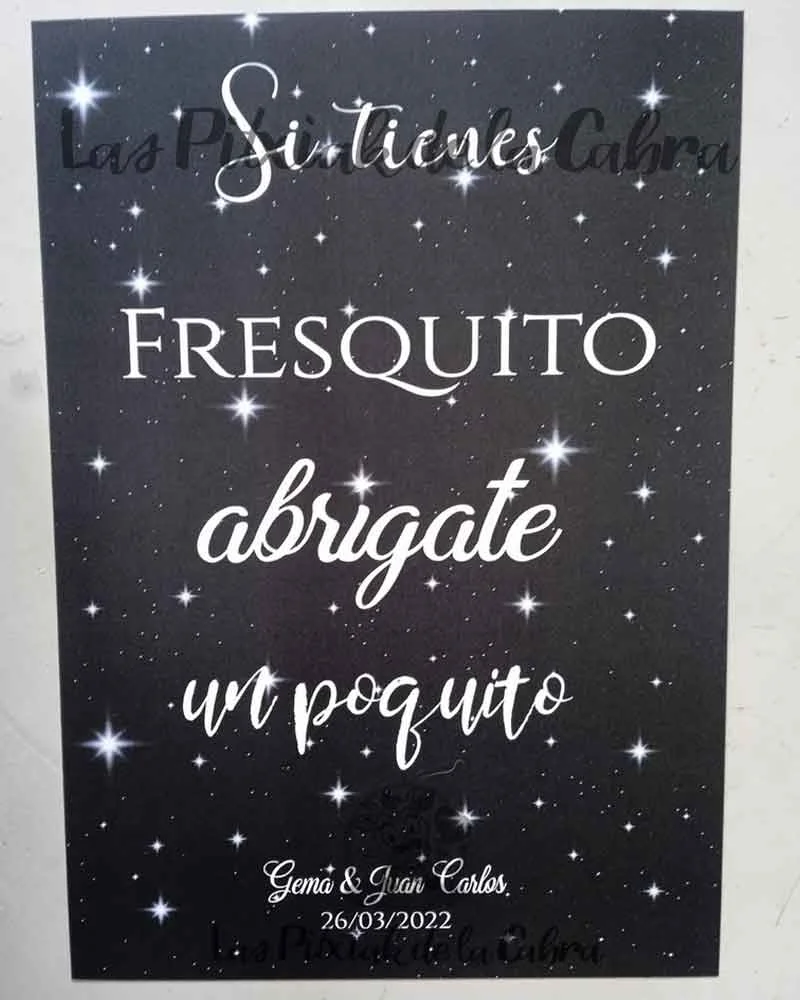 Si tienes
Las Pixiak de la Cabra
FRESQUITO
abrigate
un poquito
Gema & Juan Carlos
26/03/2022
Las Pixiak de la Cabra